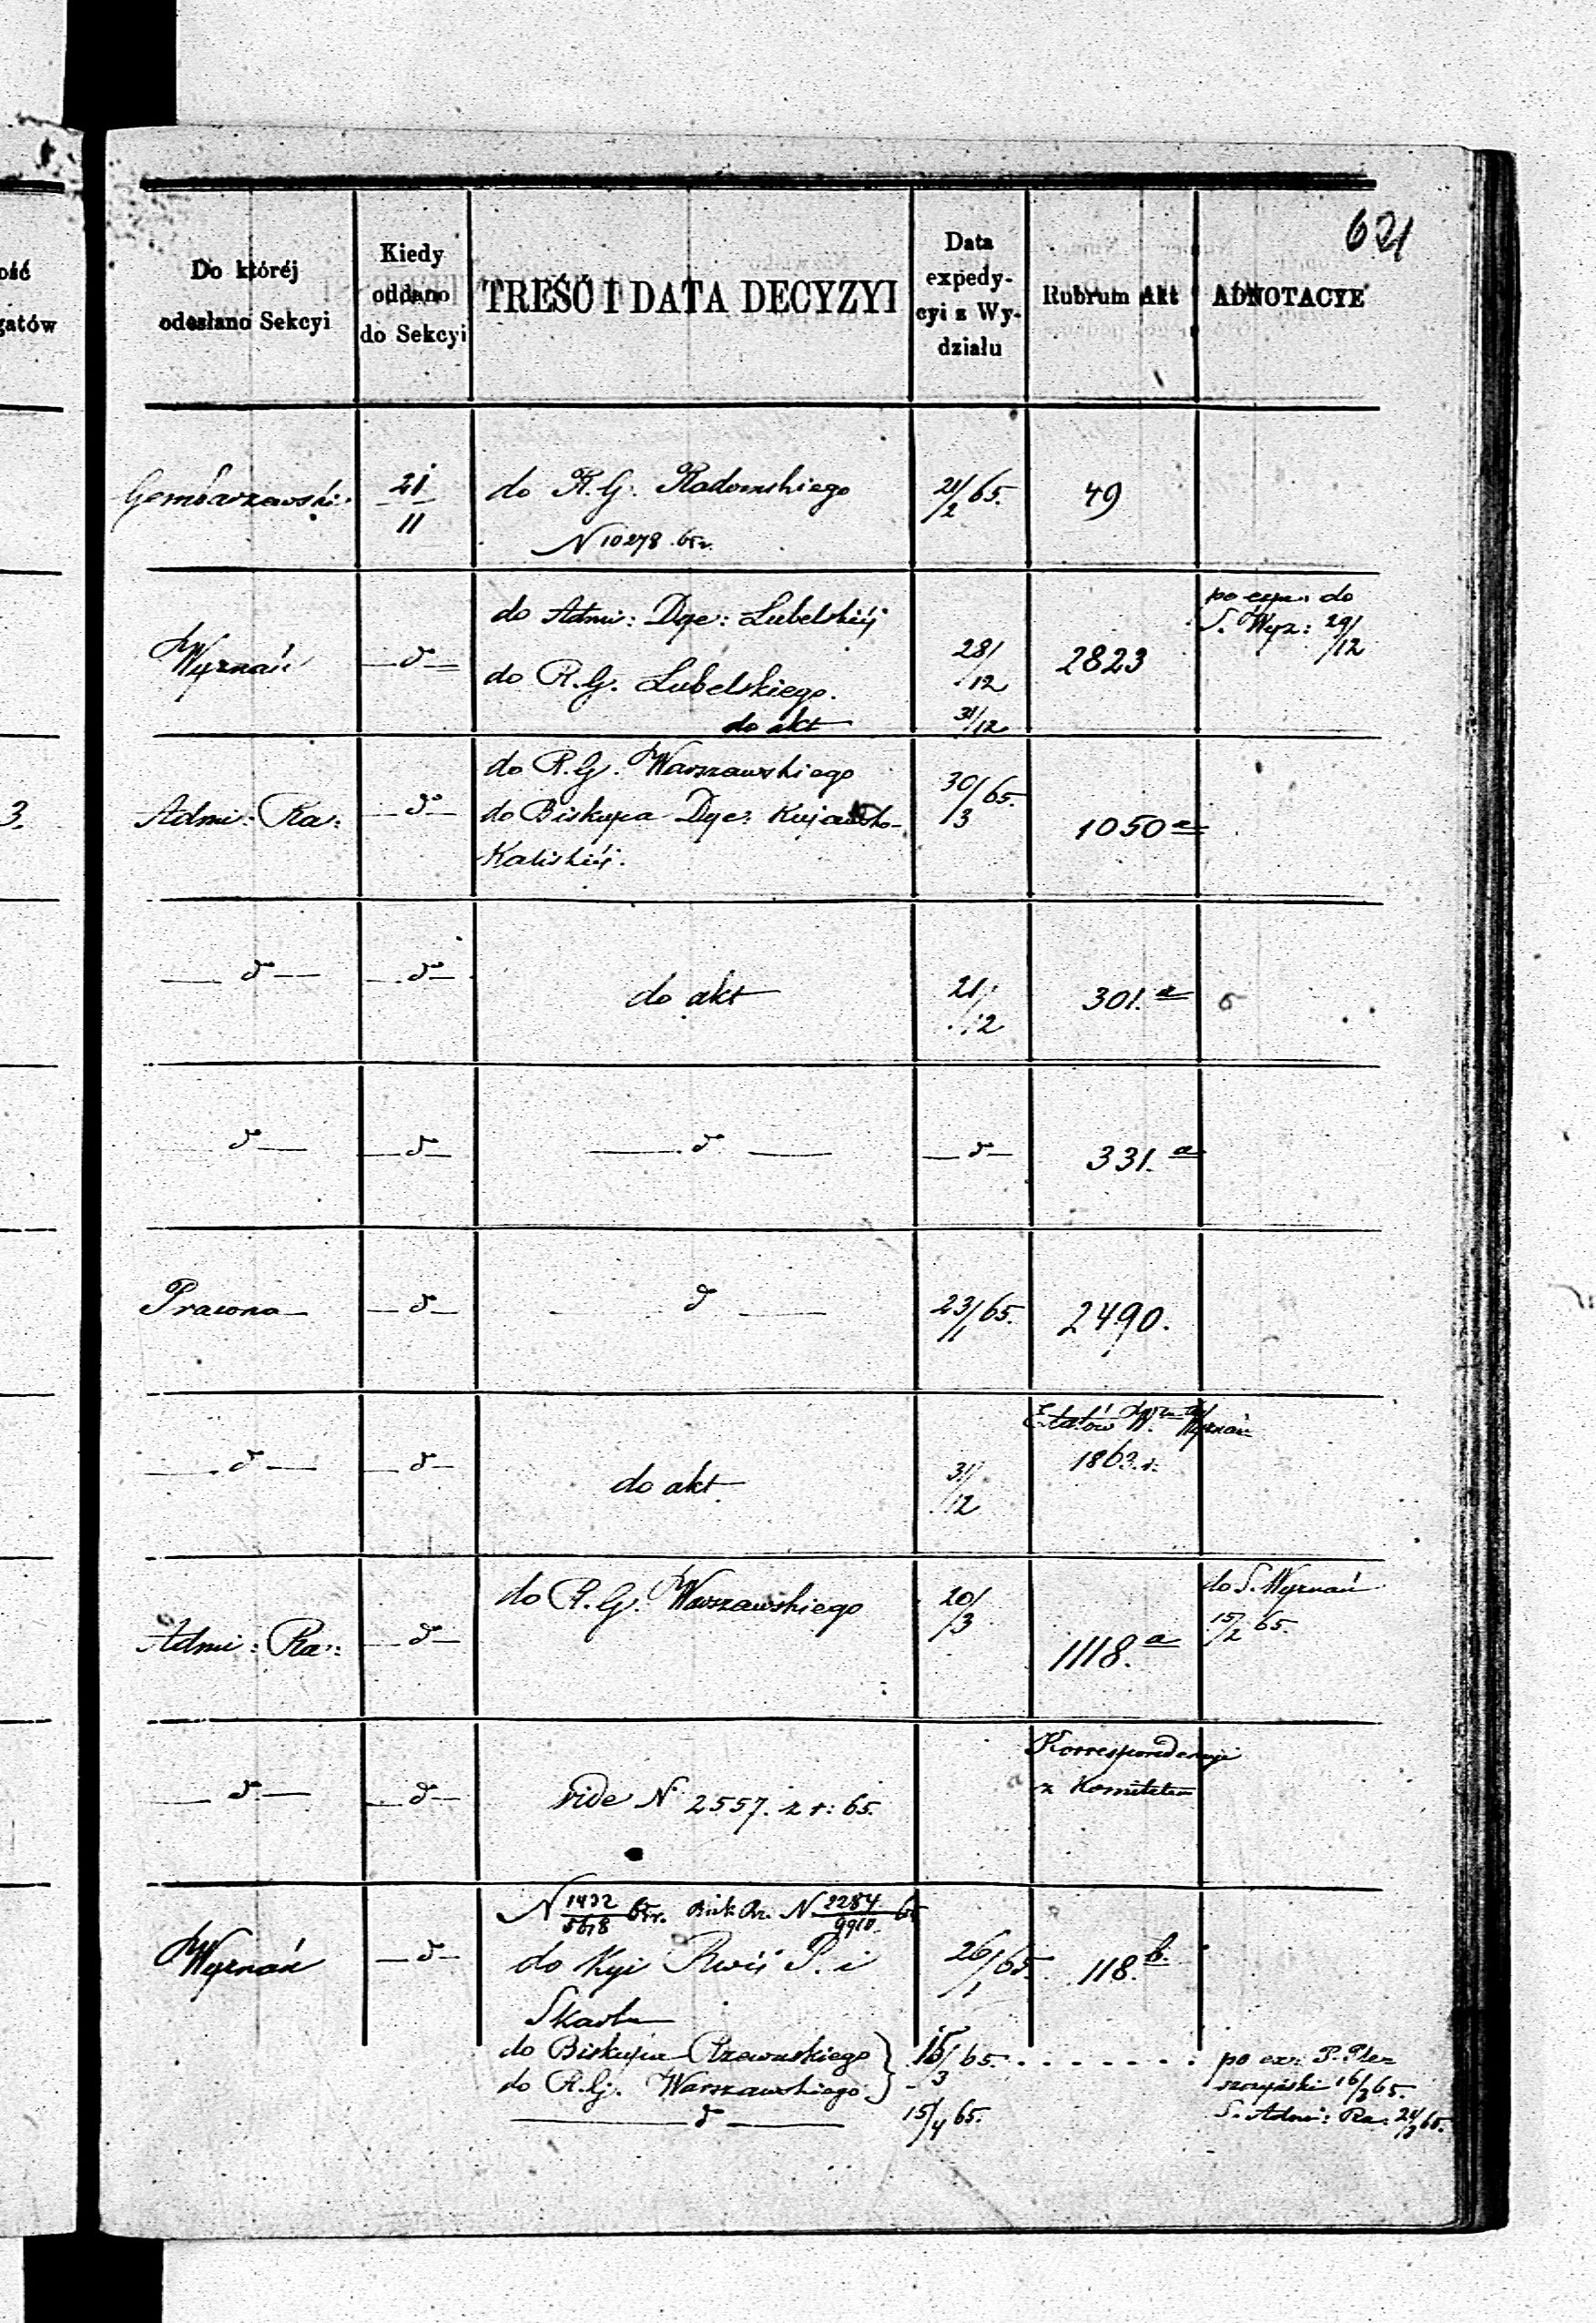 621
ość
gatów
Do któréj
odesłano Sekcyi
Kiedy
oddano
do Sekcyi
TREŚĆ I DATA DECYZYI
Data
expedy-
cyi z Wy-
działu
Rubrum Akt
ADNOTACYE
Gembarzewski 21/II do R. G. Radomskiego 21/2 65. 49
N 10278 65 r.
Wyznań — d° — do Admi: Dye: Lubelskiéj 28/12 2823 po exp: do
S. Wyz: 29/12
do R. G. Lubelskiego.
do akt 31/12
3.
Admi: Ra: — d° — do R. G. Warszawskiego 30/3 65. 1050 a
do Biskupa Dye: Kujawsko-
Kaliskiéj.
— d° — — d° — do akt 21/12 301. a
— d° — — d° — — d° — — d° — 331. a
Prawna — d° — — d° — 23/1 65. 2490.
— d° — — d° — do akt 31/12 Etatów Wyznań
1863 r.
Admi: Ra: — d° — do R. G. Warszawskiego 20/3 1118. a do S. Wyznań
15/2 65.
— d° — — d° — vide N 2557. z r: 65. Korrespondencyi
z Komitetem
N 1432/5618 65 r. N 2284/9910 65
Wyznań — d° — do Kyi Rwéj P. i 26/1 65. 118. b.
Skarbu
do Biskupa Rzewuskiego 15/3 65. po exp: P. Ple-
do R. G. Warszawskiego szczyński 16/3 65.
— d° — 15/4 65. S. Admi: Ra: 24/3 65.